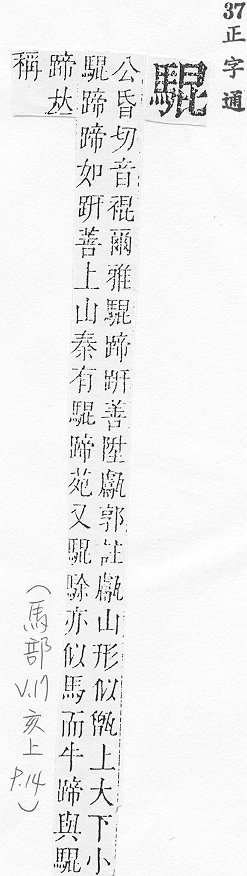 37正字通
騉
公昏切音裩爾雅騉蹄趼善陞甗郭註甗山形似甑上大下小
騉蹄蹄如趼善上山秦有騉蹄苑又騉駼亦似馬而牛蹄與騉
蹄𠀤
稱
(馬部 V.17 亥上 P.14)